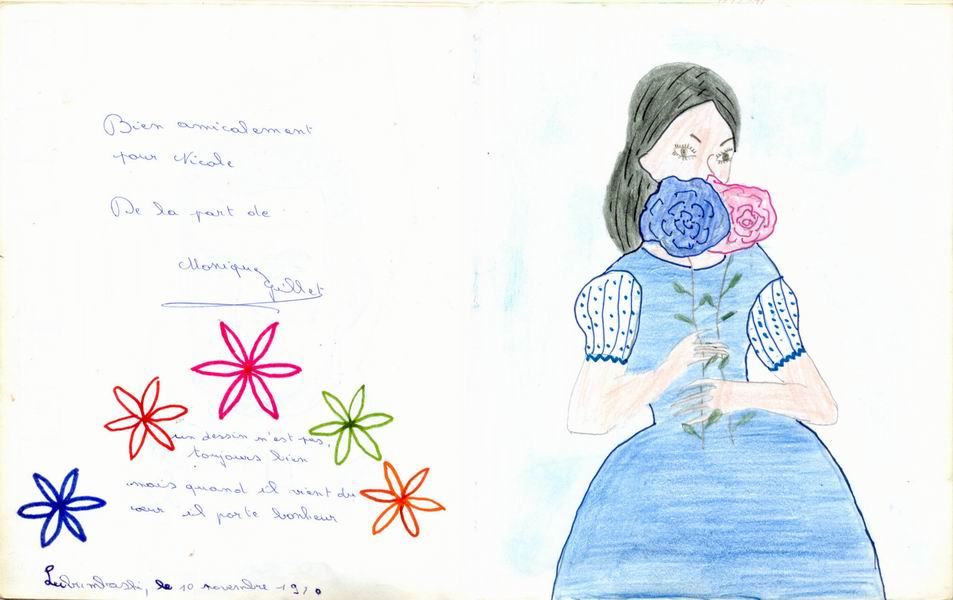 Bien amicalement
pour Nicole
De la part de
Monique
Gillet
un dessin n'est pas,
toujours bien
mais quand il vient du
cœur il porte bonheur
le 10 novembre